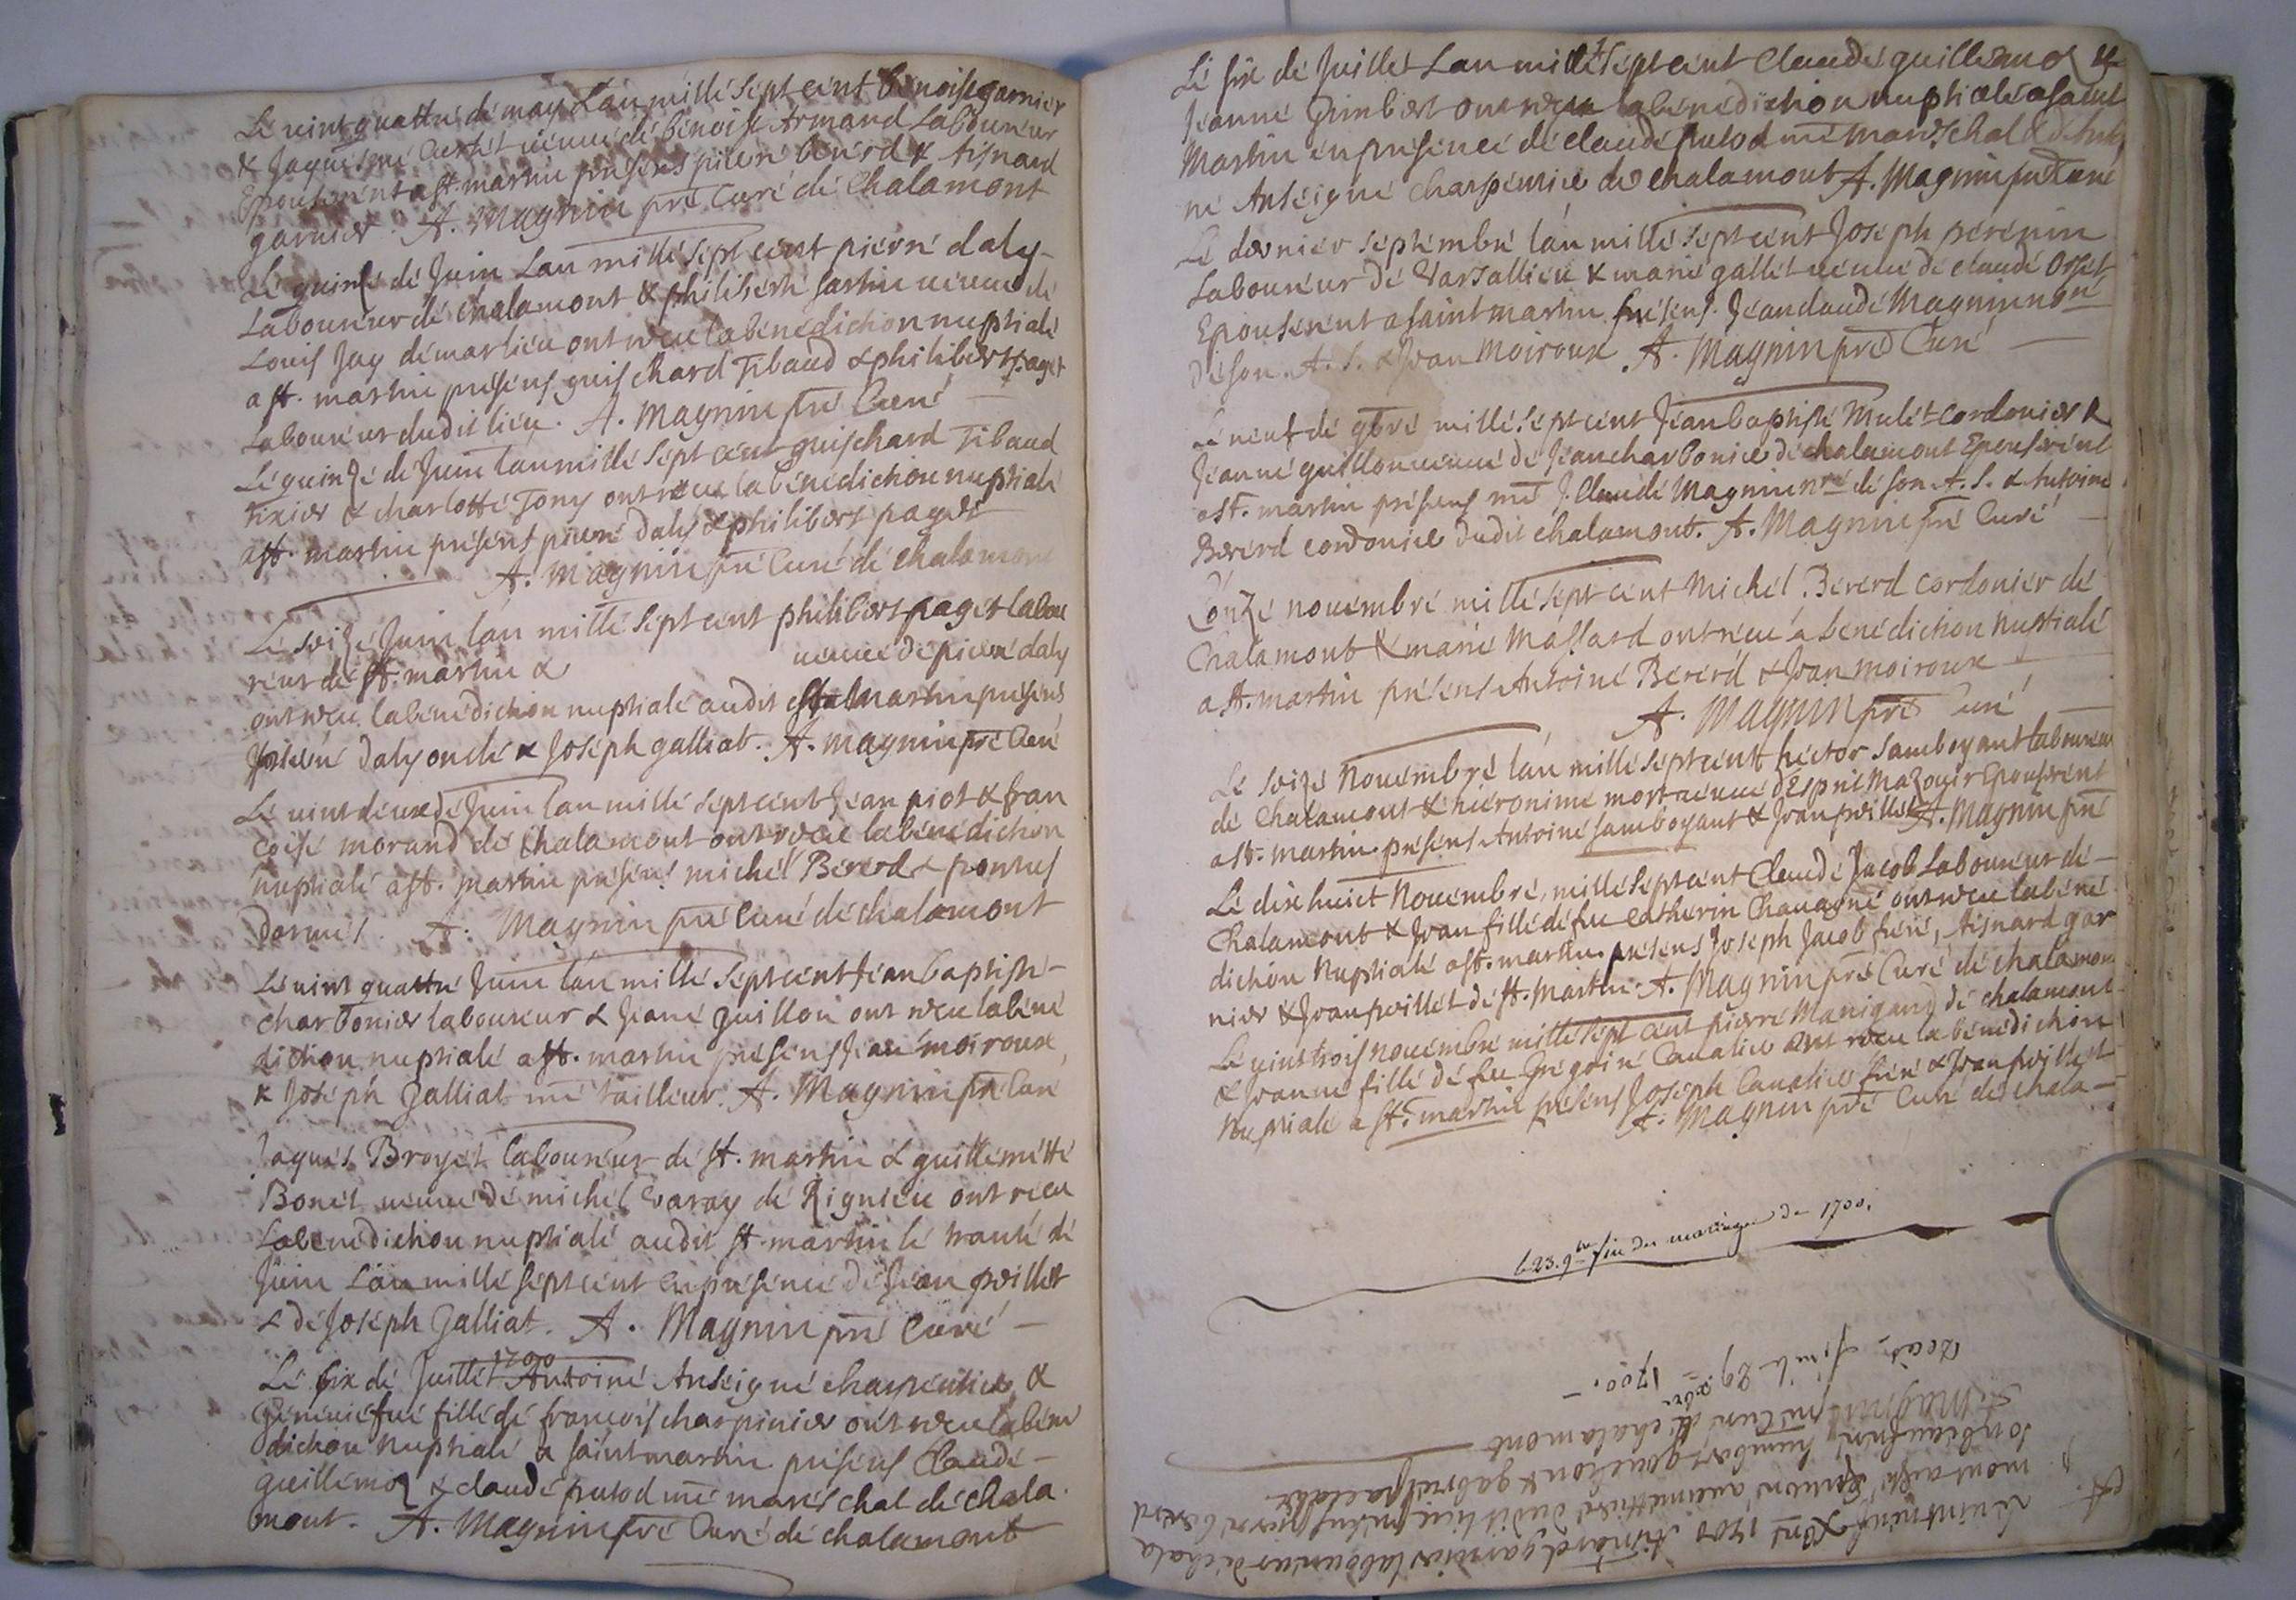 Le vint quattre de may Lan mille sept cent benoist garnier
& Jaquesme Curtet veuue de benoist Armand Laboureur
Epouserent a st. martin presens pierre berierd & Aisnard
garnier. A. Magnin pre Curé de Chalamont
Le quinse de Juin Lan mille sept cent pierre daly
Laboureur de Chalamont & philiberte sartin veuue de
Louis Jay de marlieu ont receu la benediction nuptiale
a st. martin presens guischard Tibaud & philibert paget
Laboureur dudit lieu. A. Magnin pre Curé
Le quinze de Juin lan mille sept cent guischard Tibaud
tixier & charlotte Tony ont receu la benediction nuptiale
a st. martin present pierre daly & philibert paget
A. Magnin pre Curé de chalamont
Le seize Juin lan mille sept cent philibert paget labou
reur de st. martin & veuue de pierre daly
ont receu la benediction nuptiale audit st martin presens
pierre daly oncle & Joseph galliat. A. Magnin pre Curé
Le vint deux de Juin lan mille sept cent Jean piot & fran
coise morand de Chalamont ont receu la benediction
nuptiale a st. martin presens michel Bererd & pontus
A. Magnin pre Curé de chalamont
Le vint quattre Juin lan mille sept cent Jean baptiste
charbonier laboureur & Jeane guillon ont receu la bene
diction nuptiale a st. martin presens Jean moiroux
& Joseph Galliat me tailleur. A. Magnin pre Curé
Jaques Broyet laboureur de st. martin & guillemette
Bonet veuue de michel Varay de Rignieu ont receu
La benediction nuptiale audit st. martin le trante de
Juin Lan mille sept cent en presence de Jean poillet
& de Joseph Galliat. A. Magnin pre Curé
1700
Le six de Juillet Antoine Anseigne charpentier &
Geneviefue fille de francois charpinier ont receu la bene
diction nuptiale a saint martin presens Claude
guillemoz & claude putod me mareschal de chala
mont. A. Magnin pre Curé de chalamont
Le six de Juillet Lan mille sept cent Claude guillemoz &
Jeanne Gimbert ont receu la benediction nuptiale a saint
Martin en presence de claude putod me mareschal & d'Antoi
ne Anseigne Charpentier de chalamont A. Magnin pre Curé
Le dernier septembre lan mille sept cent Joseph perenin
Laboureur de Varsallieu & marie gallet veuue de claude
Epouserent a saint martin presens. Jean claude Magnin
de son. A. S. & Jean Moiroux. A. Magnin pre Curé
Le neuf de 9bre mille sept cent Jean baptiste Mulet cordonier &
Jeanne guillon veuue de Jean charbonier de chalamont Epouserent
a st. martin presens me J. Claude Magnin nre de son A. S. & Antoine
Bererd cordonier dudit chalamont. A. Magnin pre Curé
L'onze nouembre mille sept cent Michel Bererd cordonier de
Chalamont & marie Massard ont receu la benediction nuptiale
a st. martin presens Antoine Bererd & Jean moiroux
A. Magnin pre Curé
Le seize Nouembre lan mille sept cent hector samboyant laboureur
de Chalamont & hieronime mort veuue d'Esprit Mazoyer Epouserent
a st. martin presens Antoine samboyant & Jean poillet A. Magnin pre
Le dix huict Nouembre, mille sept cent Claude Jacob Laboureur de
Chalamont & Jean fille de feu catherin Chauagne ont receu la bene
diction Nuptiale a st. martin. presens Joseph Jacob frere, Aisnard gar
nier & Jean poillet de st. Martin. A. Magnin pre Curé de chalamon
Le vint trois nouembre mille sept cent pierre Manigand de chalamont
& Jeanne fille de feu Gregoire Caualier ont receu la benediction
Nuptiale a st. martin presens Joseph Caualier frere & Jean poillet
A. Magnin pre Curé de chala
le 23. 9bre fin des mariages de 1700.
Le vint neuf Xbre 1700 Aisnard garnier laboureur de chala
son beau frere, humbert & gabriel
A. Magnin pre Curé de chalamont
29 xbre 1700.